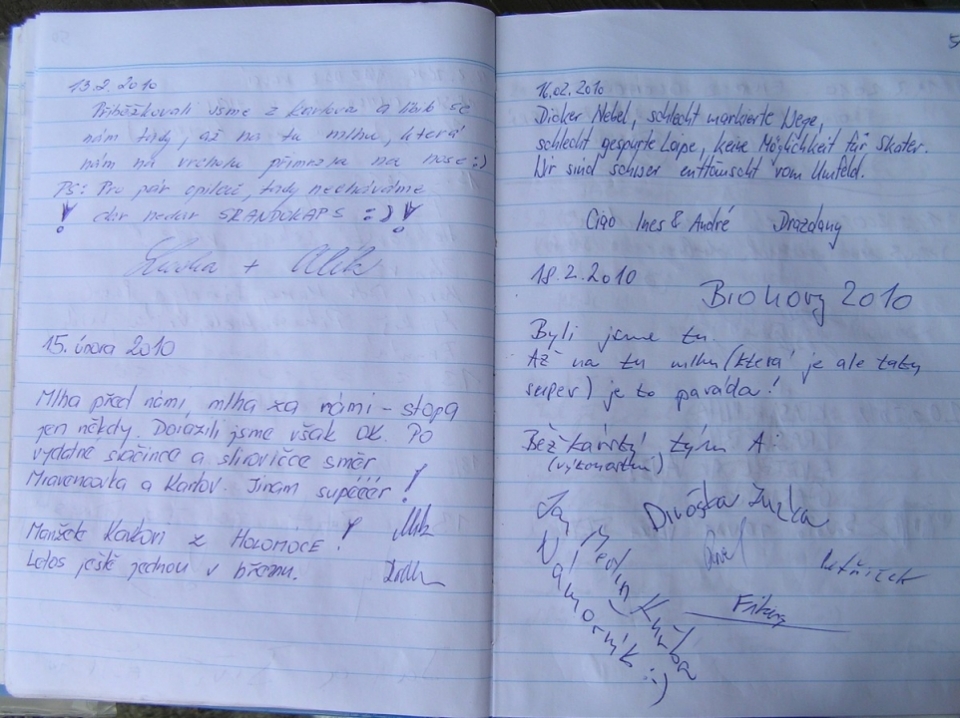 13.2.2010
Přiběžkovali jsme z Karlova a líbí se
nám tady, až na tu mlhu, která
nám na vrcholu přimrzla na nose :)
PS: Pro pár opilců, tady necháváme
! dar nedar SRANDOKAPS :) !
+ Alík
15. února 2010
Mlha před námi, mlha za námi - stopa
jen někdy. Dorazili jsme však OK. Po
vydatné svačince a slivovičce směr
Mravencovka a Karlov. Jinam supééér!
Manželé z HOLOMOCE!
Letos ještě jednou v březnu.
16.02.2010
Dicker Nebel, schlecht markierte Wege,
schlecht gespurte Loipe, keine Möglichkeit für Skater.
Wir sind schwer enttäuscht vom Umfeld.
Ciao Ines & André Drazdany
18.2.2010
BIOHOVY 2010
Byli jsme tu.
Až na tu mlhu (která je ale taky
) je to paráda!
Běžkařský tým A:
(výkonnostní)
Divoška Zuzka
Jan Merlin Khůba
Námořník :)